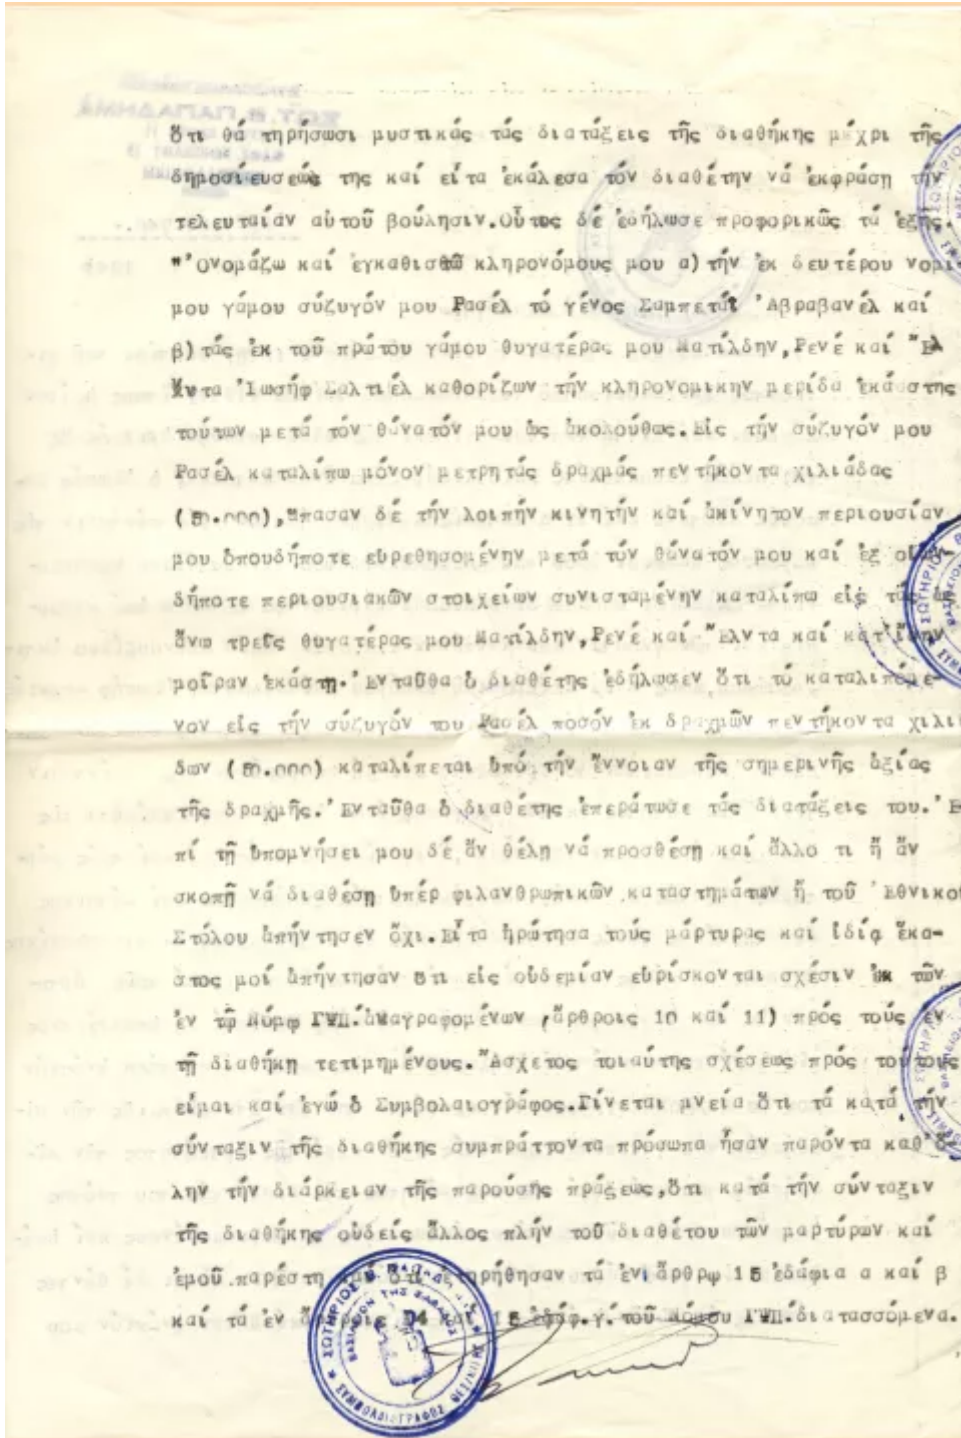 ὅτι θά τηρήσωσι μυστικάς τάς διατάξεις τῆς διαθήκης μέχρι τῆς
δημοσίευσεώς της καί εἶτα ἐκάλεσα τόν διαθέτην νά ἐκφράσῃ τήν
τελευταίαν αὐτοῦ βούλησιν.Οὗτος δέ ἐδήλωσε προφορικῶς τά ἑξῆς.
"Ὀνομάζω καί ἐγκαθιστῶ κληρονόμους μου α)τήν ἐκ δευτέρου νομί-
μου γάμου σύζυγόν μου Ρασέλ τό γένος Σαμπετάϊ Ἀβραβανέλ καί
β)τάς ἐκ τοῦ πρώτου γάμου θυγατέρας μου Ματίλδην,Ρενέ καί Ἔλ
ντα Ἰωσήφ Σαλτιέλ καθορίζων τήν κληρονομικήν μερίδα ἑκάστης
τούτων μετά τόν θάνατόν μου ὡς ἀκολούθως.Εἰς τήν σύζυγόν μου
Ρασέλ καταλίπω μόνον μετρητάς δραχμάς πεντήκοντα χιλιάδας
(50.000),ἅπασαν δέ τήν λοιπήν κινητήν καί ἀκίνητον περιουσίαν
μου ὁπουδήποτε εὑρεθησομένην μετά τόν θάνατόν μου καί ἐξ οἱων-
δήποτε περιουσιακῶν στοιχείων συνισταμένην καταλίπω εἰς τάς
ἄνω τρεῖς θυγατέρας μου Ματίλδην,Ρενέ καί Ἔλντα καί κατ'ἴσην
μοῖραν ἑκάστη.Ἐνταῦθα ὁ διαθέτης ἐδήλωσεν ὅτι τό καταλιπόμε-
νον εἰς τήν σύζυγόν του Ρασέλ ποσόν ἐκ δραχμῶν πεντήκοντα χιλιά
δων (50.000) καταλίπεται ὑπό τήν ἔννοιαν τῆς σημερινῆς ἀξίας
τῆς δραχμῆς.Ἐνταῦθα ὁ διαθέτης ἐπεράτωσε τάς διατάξεις του.Ἐ
πί τῇ ὑπομνήσει μου δέ ἄν θέλῃ νά προσθέσῃ καί ἄλλο τι ἤ ἄν
σκοπῇ νά διαθέσῃ ὑπέρ φιλανθρωπικῶν καταστημάτων ἤ τοῦ Ἐθνικοῦ
Στόλου ἀπήντησεν ὄχι.Εἶτα ἠρώτησα τούς μάρτυρας καί ἰδίᾳ ἕκα-
στος μοί ἀπήντησαν ὅτι εἰς οὐδεμίαν εὑρίσκονται σχέσιν ἐκ τῶν
ἐν τῷ Νόμῳ ΓΨΠ.ἀναγραφομένων ,ἄρθροις 10 καί 11) πρός τούς ἐν
τῇ διαθήκῃ τετιμημένους.Ἄσχετος τοιαύτης σχέσεως πρός τούτους
εἶμαι καί ἐγώ ὁ Συμβολαιογράφος.Γίνεται μνεία ὅτι τά κατά τήν
σύνταξιν τῆς διαθήκης συμπράττοντα πρόσωπα ἦσαν παρόντα καθ'ὅ-
λην τήν διάρκειαν τῆς παρούσης πράξεως,ὅτι κατά τήν σύνταξιν
τῆς διαθήκης οὐδείς ἄλλος πλήν τοῦ διαθέτου τῶν μαρτύρων καί
ἐμοῦ παρέστη καί ὅτι ἐτηρήθησαν τά ἐν ἄρθρῳ 15 ἐδάφια α καί β
καί τά ἐν ἄρθροις 14 καί 15 ἐδάφ.γ.τοῦ Νόμου ΓΨΠ.διατασσόμενα.
ΣΥΜΒΟΛΑΙΟΓΡΑΦΟΣ ΘΕΣ/ΝΙΚΗΣ
ΒΑΣΙΛΕΙΟΝ ΤΗΣ ΕΛΛΑΔΟΣ